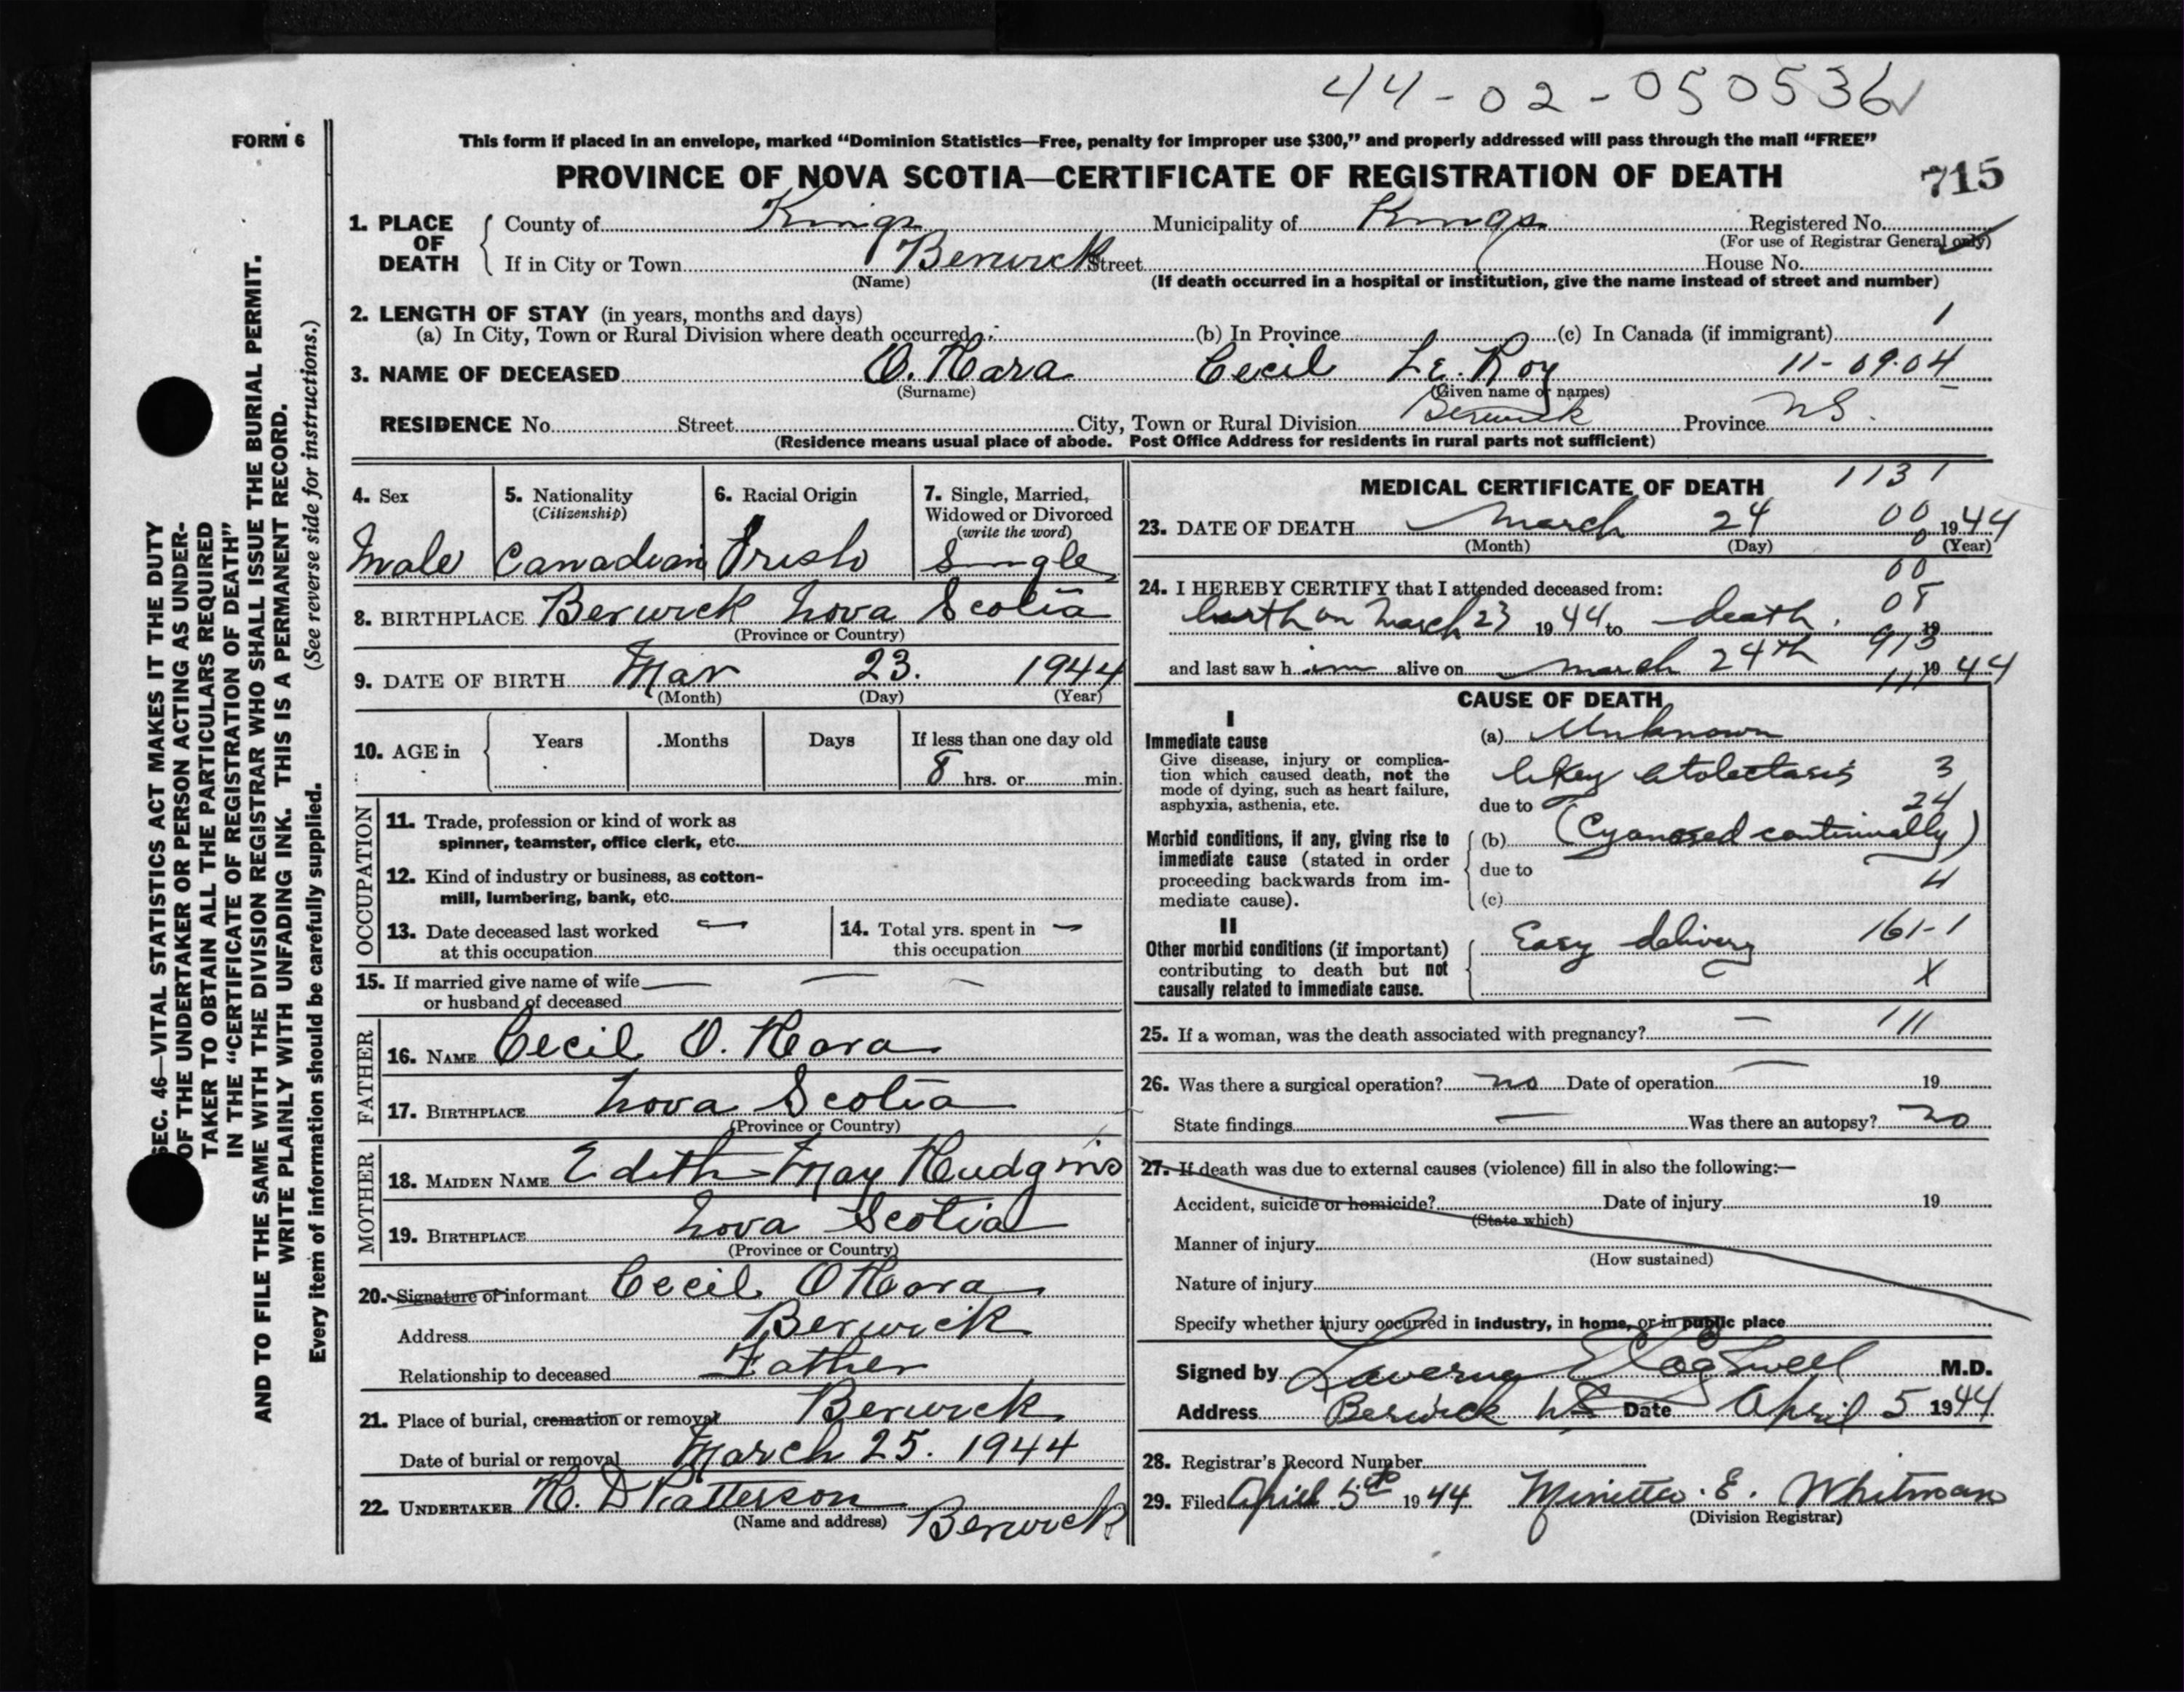 44-02-050536✓
FORM 6
This form if placed in an envelope, marked "Dominion Statistics—Free, penalty for improper use $300," and properly addressed will pass through the mail "FREE"
PROVINCE OF NOVA SCOTIA—CERTIFICATE OF REGISTRATION OF DEATH
715
1. PLACE OF DEATH County of Kings Municipality of Kings Registered No.
(For use of Registrar General only)
If in City or Town Berwick Street House No.
(Name) (If death occurred in a hospital or institution, give the name instead of street and number)
2. LENGTH OF STAY (in years, months and days)
(a) In City, Town or Rural Division where death occurred (b) In Province (c) In Canada (if immigrant) 1
3. NAME OF DECEASED O.Hara Cecil Le.Roy 11-09-04
(Surname) (Given name or names)
RESIDENCE No. Street City, Town or Rural Division Berwick Province N.S.
(Residence means usual place of abode. Post Office Address for residents in rural parts not sufficient)
4. Sex Male
5. Nationality (Citizenship) Canadian
6. Racial Origin Irish
7. Single, Married, Widowed or Divorced (write the word) Single
8. BIRTHPLACE Berwick Nova Scotia
(Province or Country)
9. DATE OF BIRTH Mar 23. 1944
(Month) (Day) (Year)
10. AGE in Years Months Days If less than one day old
8 hrs. or min.
OCCUPATION
11. Trade, profession or kind of work as
spinner, teamster, office clerk, etc.
12. Kind of industry or business, as cotton-
mill, lumbering, bank, etc.
13. Date deceased last worked —
at this occupation
14. Total yrs. spent in —
this occupation
15. If married give name of wife — — —
or husband of deceased
FATHER
16. NAME Cecil O.Hara
17. BIRTHPLACE Nova Scotia
(Province or Country)
MOTHER
18. MAIDEN NAME Edith May Hudgins
19. BIRTHPLACE Nova Scotia
(Province or Country)
20. Signature of informant Cecil OHara
Address Berwick
Relationship to deceased Father
21. Place of burial, cremation or removal Berwick
Date of burial or removal March 25. 1944
22. UNDERTAKER H. D Patterson
(Name and address) Berwick
MEDICAL CERTIFICATE OF DEATH 1131
23. DATE OF DEATH March 24 00 1944
(Month) (Day) (Year)
24. I HEREBY CERTIFY that I attended deceased from: 00
birth on March 23 1944 to death. 19
and last saw him alive on March 24th 913 1944
111
CAUSE OF DEATH
I
Immediate cause
Give disease, injury or complica-
tion which caused death, not the
mode of dying, such as heart failure,
asphyxia, asthenia, etc.
(a) Unknown
likely atolectasis 3
due to 24
Morbid conditions, if any, giving rise to
immediate cause (stated in order
proceeding backwards from im-
mediate cause).
(b) (Cyanosed continually)
due to
4
(c)
II
Other morbid conditions (if important)
contributing to death but not
causally related to immediate cause.
Easy delivery 161-1
X
25. If a woman, was the death associated with pregnancy? — 111
26. Was there a surgical operation? no Date of operation — 19
State findings — Was there an autopsy? no
27. If death was due to external causes (violence) fill in also the following:—
Accident, suicide or homicide? Date of injury 19
(State which)
Manner of injury
(How sustained)
Nature of injury
Specify whether injury occurred in industry, in home, or in public place
Signed by Laverna E Cogswell M.D.
Address Berwick NS Date April 5 1944
28. Registrar's Record Number
29. Filed April 5th 1944 Minetta. E. Whitman
(Division Registrar)
SEC. 46—VITAL STATISTICS ACT MAKES IT THE DUTY
OF THE UNDERTAKER OR PERSON ACTING AS UNDER-
TAKER TO OBTAIN ALL THE PARTICULARS REQUIRED
IN THE "CERTIFICATE OF REGISTRATION OF DEATH"
AND TO FILE THE SAME WITH THE DIVISION REGISTRAR WHO SHALL ISSUE THE BURIAL PERMIT.
WRITE PLAINLY WITH UNFADING INK. THIS IS A PERMANENT RECORD.
Every item of information should be carefully supplied. (See reverse side for instructions.)